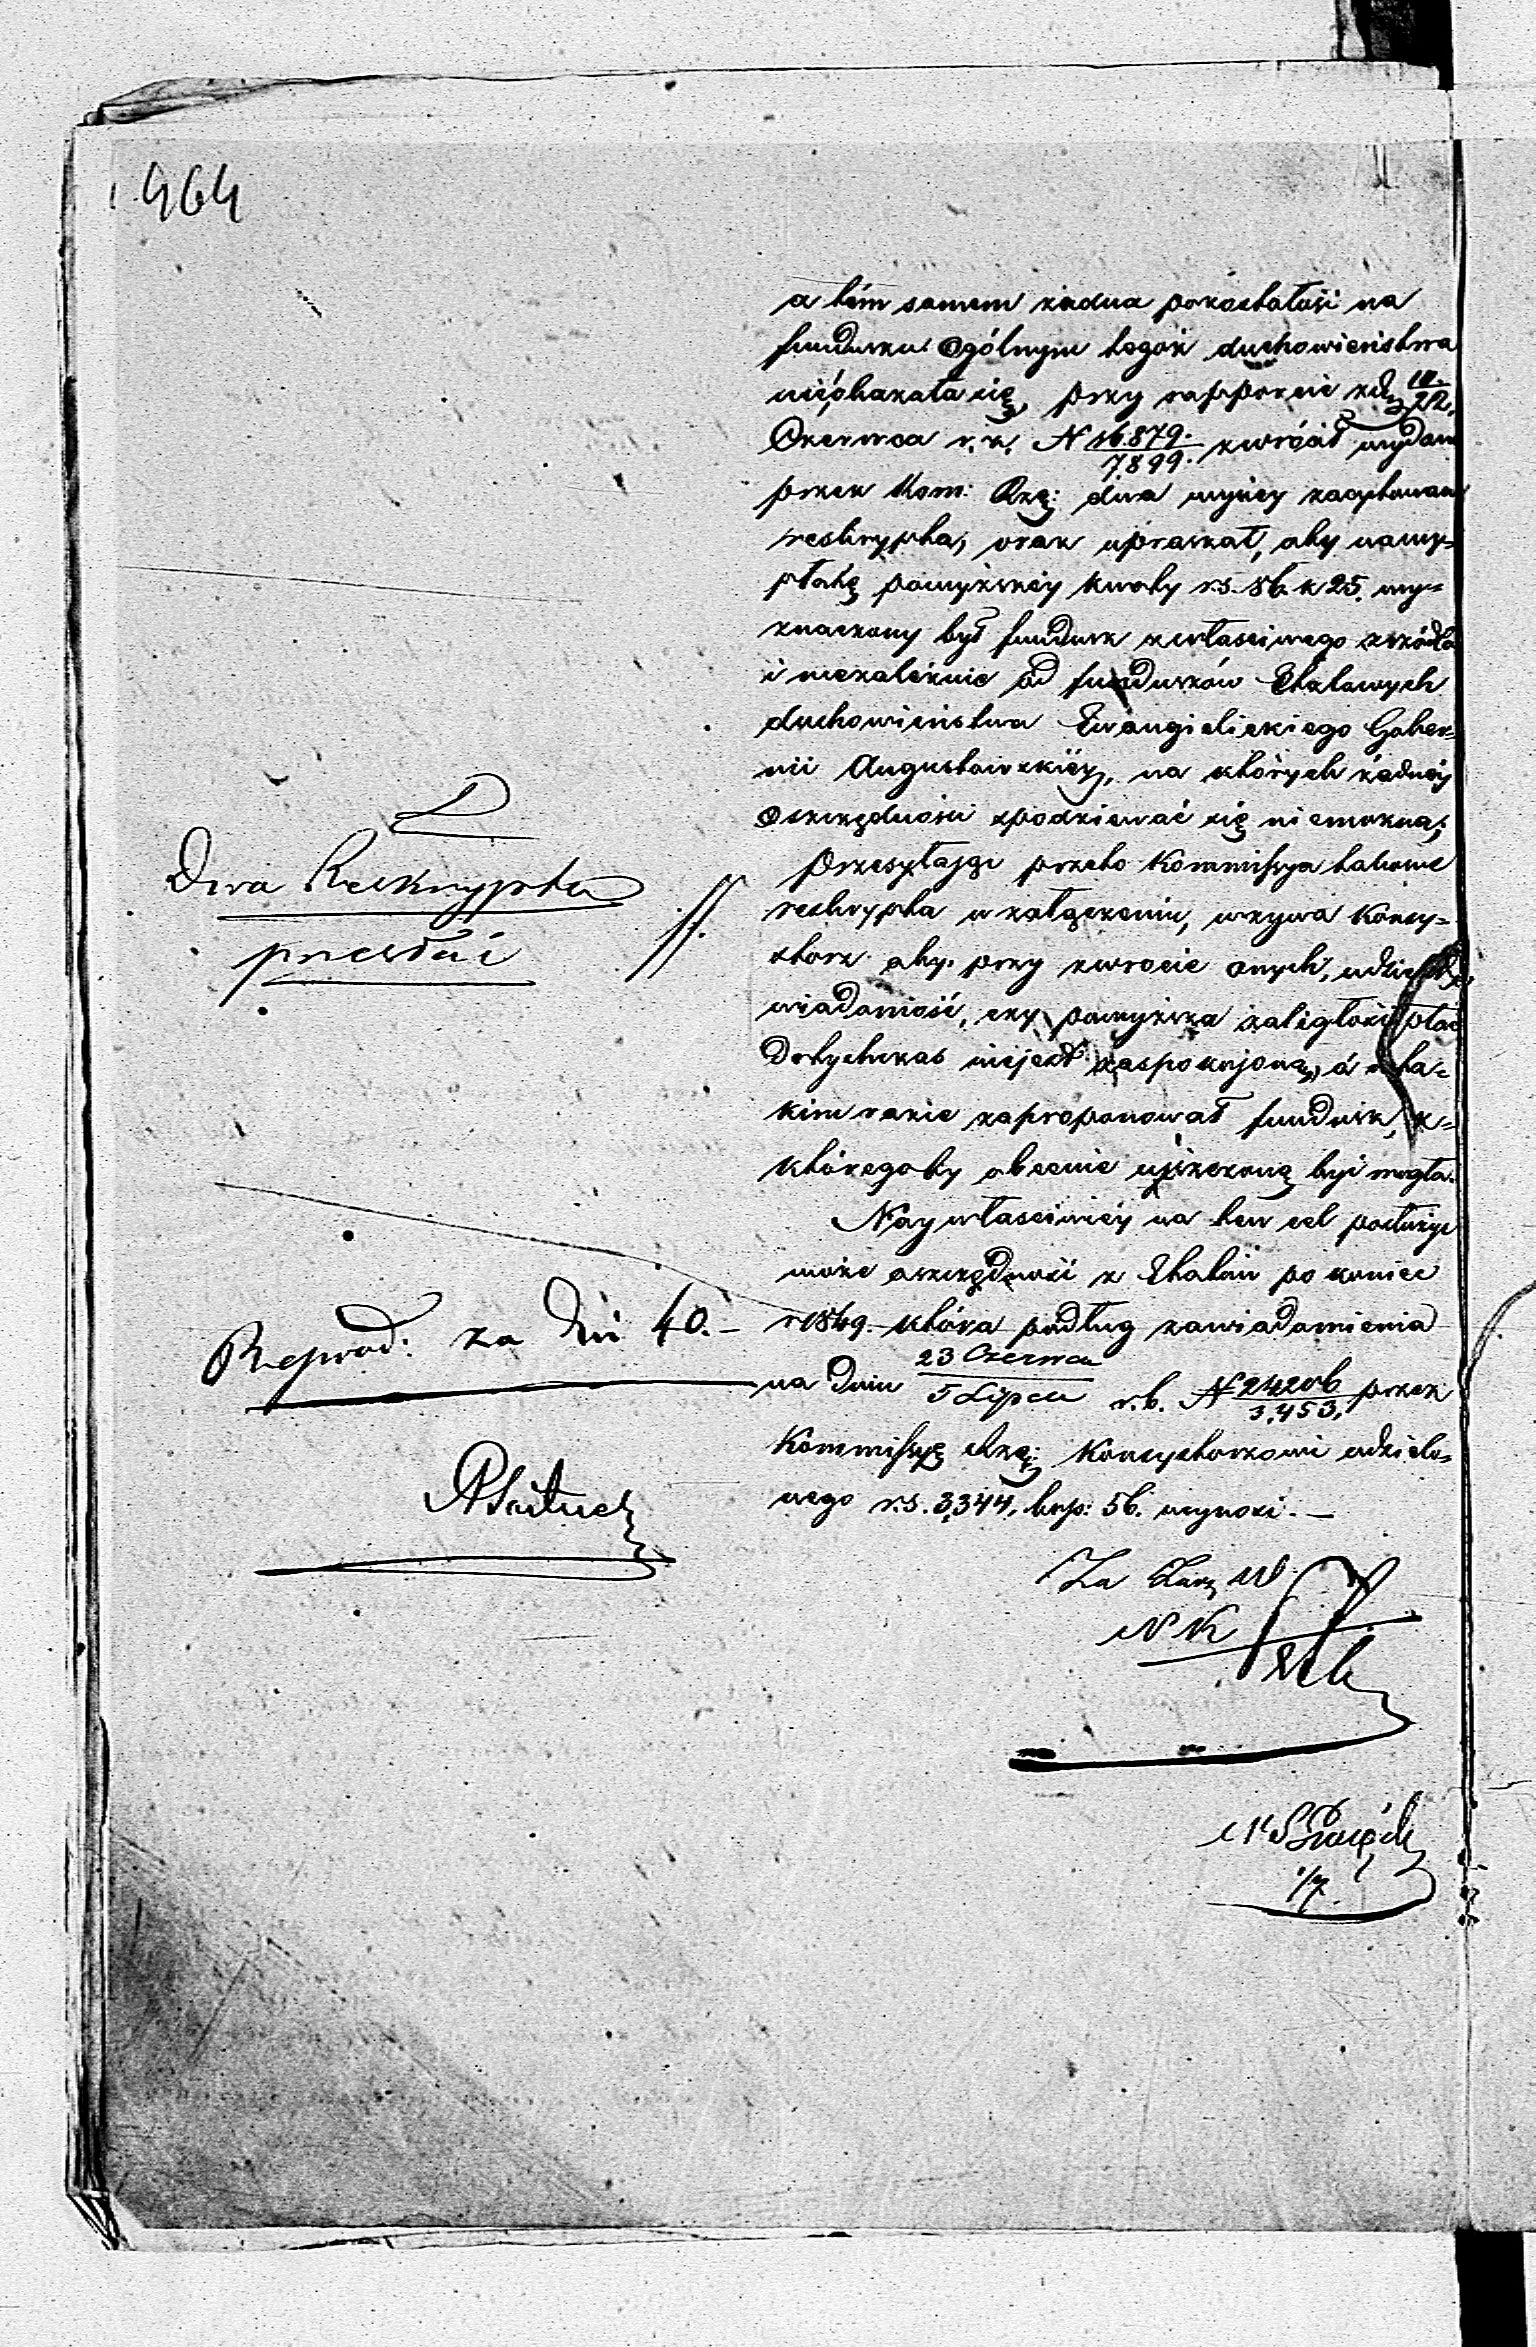 464
a tém samem żadna pozostałość na
funduszu Ogólnym tegoż duchowieństwa
nieokazała się, przy rapporcie z d. 10/22.
Czerwca r. z. N 16.879./7899. zwrócił wydane
przez Kom: Rzą: dwa wyżey zacytowane
reskrypta, oraz upraszał, aby na wy-
płatę powyższéy kwoty r.s. 86. k 25. wy-
znaczony był fundusz z właściwego źródła
i niezależnie od funduszów Etatowych
duchowieństwa Ewangielickiego Guber-
nii Augustowskiéy, na których żadnéy
Oszczędności spodziewać się niemożna;
Przesyłając przeto Kommissya takowe
reskrypta w załączeniu, wzywa Konsy-
storz aby przy zwrocie onych, udzielił
wiadomość, czy powyższa zaległość płac
Dotychczas niejest zaspokojoną, a w ta-
kim razie zaproponował fundusz, z-
któregoby obecnie uiszczoną być mogła.
Naywłaściwiéy na ten cel posłużyć
może oszczędność z Etatów po koniec
r 1849. która podług zawiadomienia
na dniu 23 Czerwca/5 Lipca r.b. N 24206/3,453, przez
Kommissyę Rzą: Konsystorzowi udzielo-
nego r.s. 3,344, kop: 56. wynosi. —
Dwa Reskrypta
przesłać
Reprod: za dni 40. —
Za
N K
1/7.